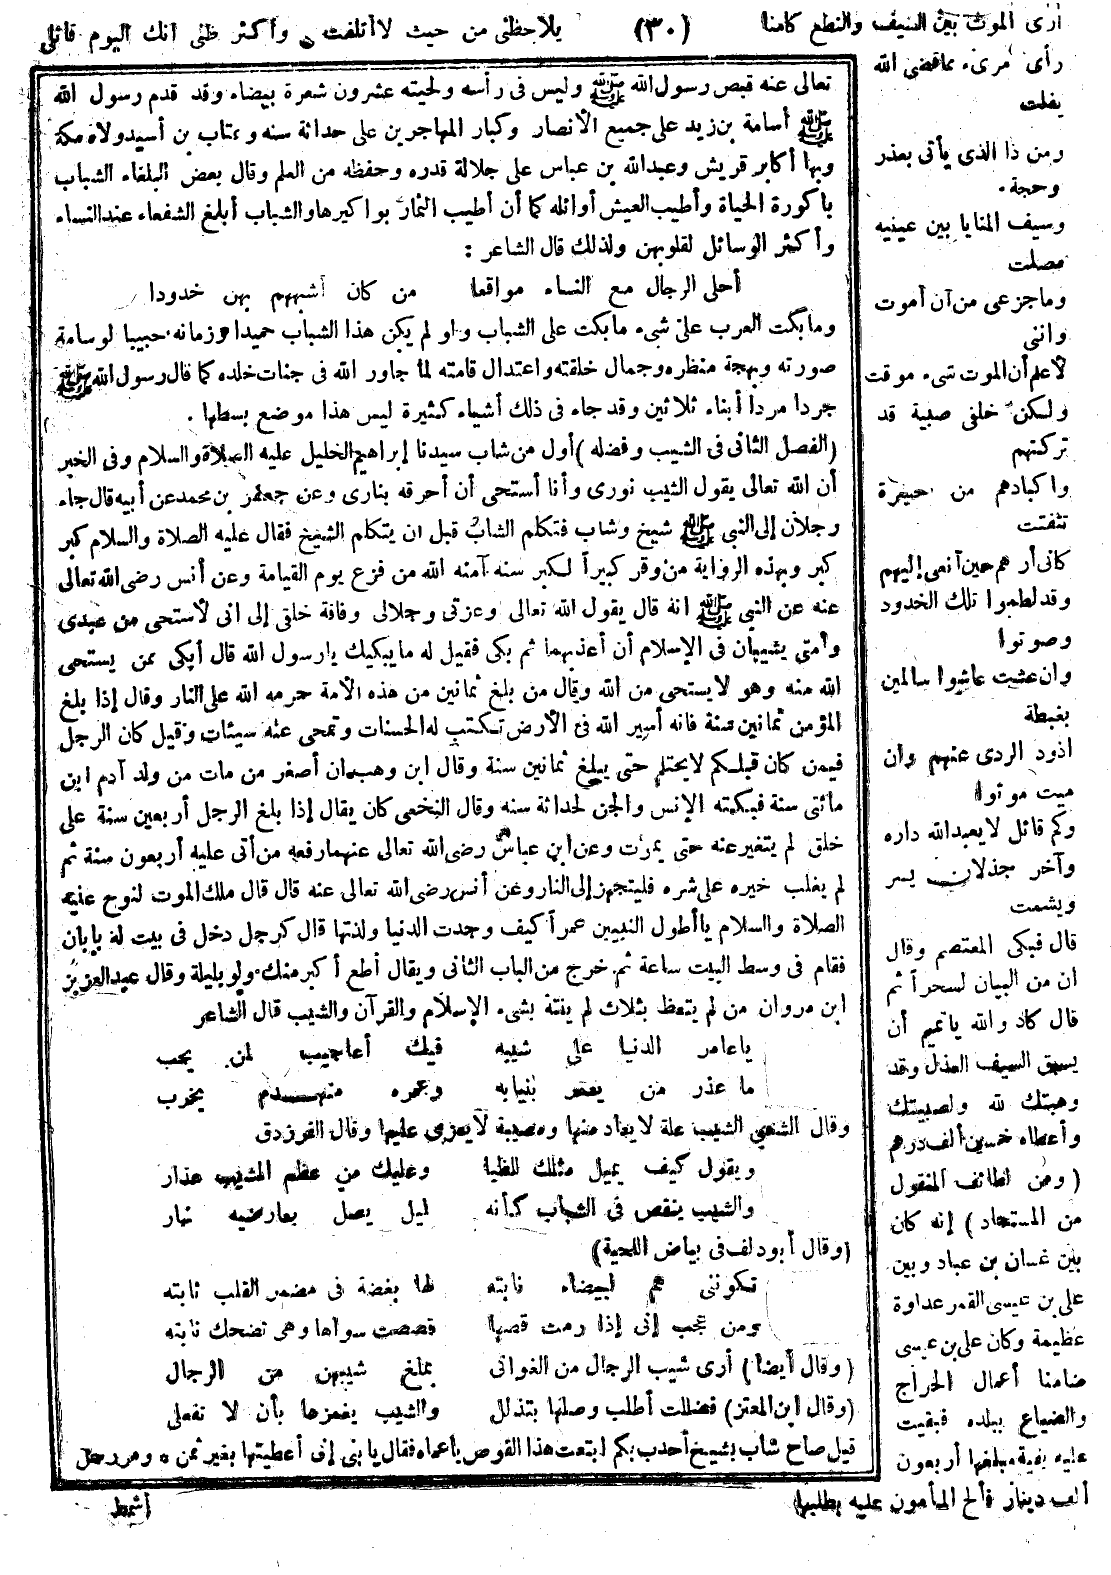 أرى الموت بين السيف والنطع كامنا (٣٠) يلاحظنى من حيث لاأتلفت وأكثر ظنى أنك اليوم قاتلى
تعالى عنه قبض رسول الله ﷺ وليس فى رأسه ولحيته عشرون شعرة بيضاء وقد قدم رسول الله
ﷺ أسامة بن زيد على جميع الأنصار وكبار المهاجرين على حداثة سنه وعتاب بن أسيد ولاه مكة
وبها أكابر قريش وعبدالله بن عباس على جلالة قدره وحفظه من العلم وقال بعض البلغاء الشباب
باكورة الحياة وأطيب العيش أوائله كما أن أطيب الثمار بواكيرها والشباب أبلغ الشفعاء عند النساء
وأكثر الوسائل لقلوبهن ولذلك قال الشاعر :
أحلى الرجال مع النساء مواقعا من كان أشبههم بهن خدودا
وما بكت العرب على شىء ما بكت على الشباب ولو لم يكن هذا الشباب حميدا وزمانه حبيبا لوسامة
صورته وبهجة منظره وجمال خلقته واعتدال قامته لما جاور الله فى جنات خلده كما قال رسول الله ﷺ
جردا مردا أبناء ثلاثين وقد جاء فى ذلك أشياء كثيرة ليس هذا موضع بسطها .
(الفصل الثانى فى الشيب وفضله) أول من شاب سيدنا إبراهيم الخليل عليه الصلاة والسلام وفى الخبر
أن الله تعالى يقول الشيب نورى وأنا أستحى أن أحرقه بنارى وعن جعفر بن محمد عن أبيه قال جاء
رجلان إلى النبى ﷺ شيخ وشاب فتكلم الشاب قبل أن يتكلم الشيخ فقال عليه الصلاة والسلام كبر
كبر وبهذه الرواية من وقر كبيرا لكبر سنه آمنه الله من فزع يوم القيامة وعن أنس رضى الله تعالى
عنه عن النبى ﷺ انه قال يقول الله تعالى وعزتى وجلالى وفاقة خلقى إلى انى لأستحى من عبدى
وأمتى يشيبان فى الإسلام أن أعذبهما ثم بكى فقيل له ما يبكيك يارسول الله قال أبكى ممن يستحى
الله منه وهو لا يستحى من الله وقال من بلغ ثمانين من هذه الأمة حرمه الله على النار وقال إذا بلغ
المؤمن ثمانين سنة فانه أسير الله فى الأرض تكتب له الحسنات وتمحى عنه سيئات وقيل كان الرجل
فيمن كان قبلكم لا يحتلم حتى يبلغ ثمانين سنة وقال ابن وهب ان أصغر من مات من ولد آدم ابن
مائتى سنة فبكته الإنس والجن لحداثة سنه وقال النخعى كان يقال إذا بلغ الرجل أربعين سنة على
خلق لم يتغير عنه حتى يموت وعن ابن عباس رضى الله تعالى عنهما رفعه من أتى عليه أربعون سنة ثم
لم يغلب خيره على شره فليتجهز إلى النار وعن أنس رضى الله تعالى عنه قال قال ملك الموت لنوح عليه
الصلاة والسلام يا أطول النبيين عمرا كيف وجدت الدنيا ولذتها قال كرجل دخل فى بيت له بابان
فقام فى وسط البيت ساعة ثم خرج من الباب الثانى ويقال أطع أكبر منك ولو بليلة وقال عبدالعزيز
ابن مروان من لم يتعظ بثلاث لم ينته بشىء الإسلام والقرآن والشيب قال الشاعر
ياعامر الدنيا على شيبه فيك أعاجيب لمن يعجب
ما عذر من يعمر بنيانه وعمره منهدم يخرب
وقال الشعبى الشيب علة لا يعاد منها ومصيبة لا يعزى عليها وقال الفرزدق
ويقول كيف يميل مثلك للظبا وعليك من عظم المشيب عذار
والشيب ينقص فى الشباب كأنه ليل يصل بعارضيه نهار
(وقال أبو دلف فى بياض اللحية)
تكوننى هم لبيضاء نابته لها بغضة فى مضمر القلب ثابته
ومن عجب إنى إذا رمت قصها قصصت سواها وهى تضحك نابته
(وقال أيضا) أرى شيب الرجال من الغوانى بملغ شيبهن من الرجال
(وقال ابن المعتز) فظللت أطلب وصلها بتذلل والشيب يغمزها بأن لا تفعلى
قيل صاح شاب بشيخ أحدب بكم ابتعت هذا القوس ياعماه فقال يا بنى إنى أعطيتها بغير ثمن ٥ ومر رجل
أشمط
رأى امرىء مما قضى الله
يفلت
ومن ذا الذى يأتى بعذر
وحجة
وسيف المنايا بين عينيه
مصلت
وما جزعى من أن أموت
واننى
لأعلم أن الموت شىء موقت
ولكن خلفى صبية قد
تركتهم
واكبادهم من حسرة
تتفتت
كأنى أراهم حين أنعى إليهم
وقد لطموا تلك الخدود
وصوتوا
وان عشت عاشوا سالمين
بغبطة
اذود الردى عنهم وان
مت موتوا
وكم قائل لا يبعد الله داره
وآخر جذلان يسر
ويشمت
قال فبكى المعتصم وقال
ان من البيان لسحرا ثم
قال كاد والله ياتميم أن
يسبق السيف العذل وقد
وهبتك لله ولصبيتك
وأعطاه خمسين ألف درهم
(ومن لطائف المنقول
من المستجاد) إنه كان
بين غسان بن عباد وبين
على بن عيسى القمر عداوة
عظيمة وكان على بن عيسى
ضامنا أعمال الخراج
والضياع ببلده فبقيت
عليه بقية مبلغها أربعون
ألف دينار فألح المأمون عليه بطلبها